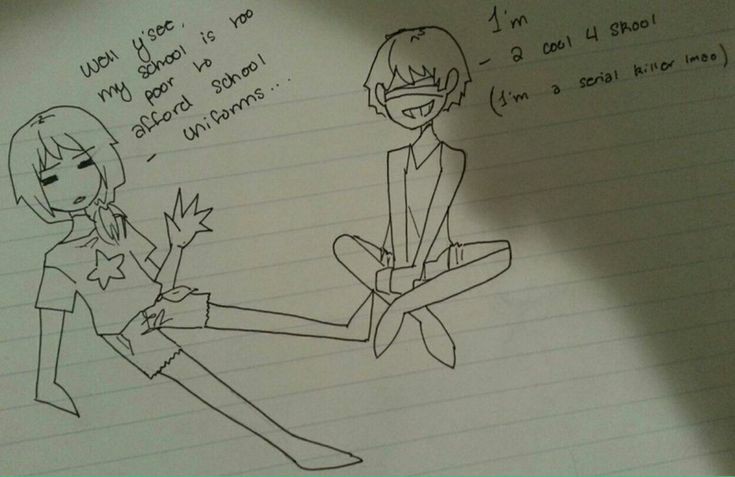 Well y'see,
my school is too
poor to
afford school
- uniforms....
I'm
- 2 cool 4 skool
(I'm a serial killer lmao)